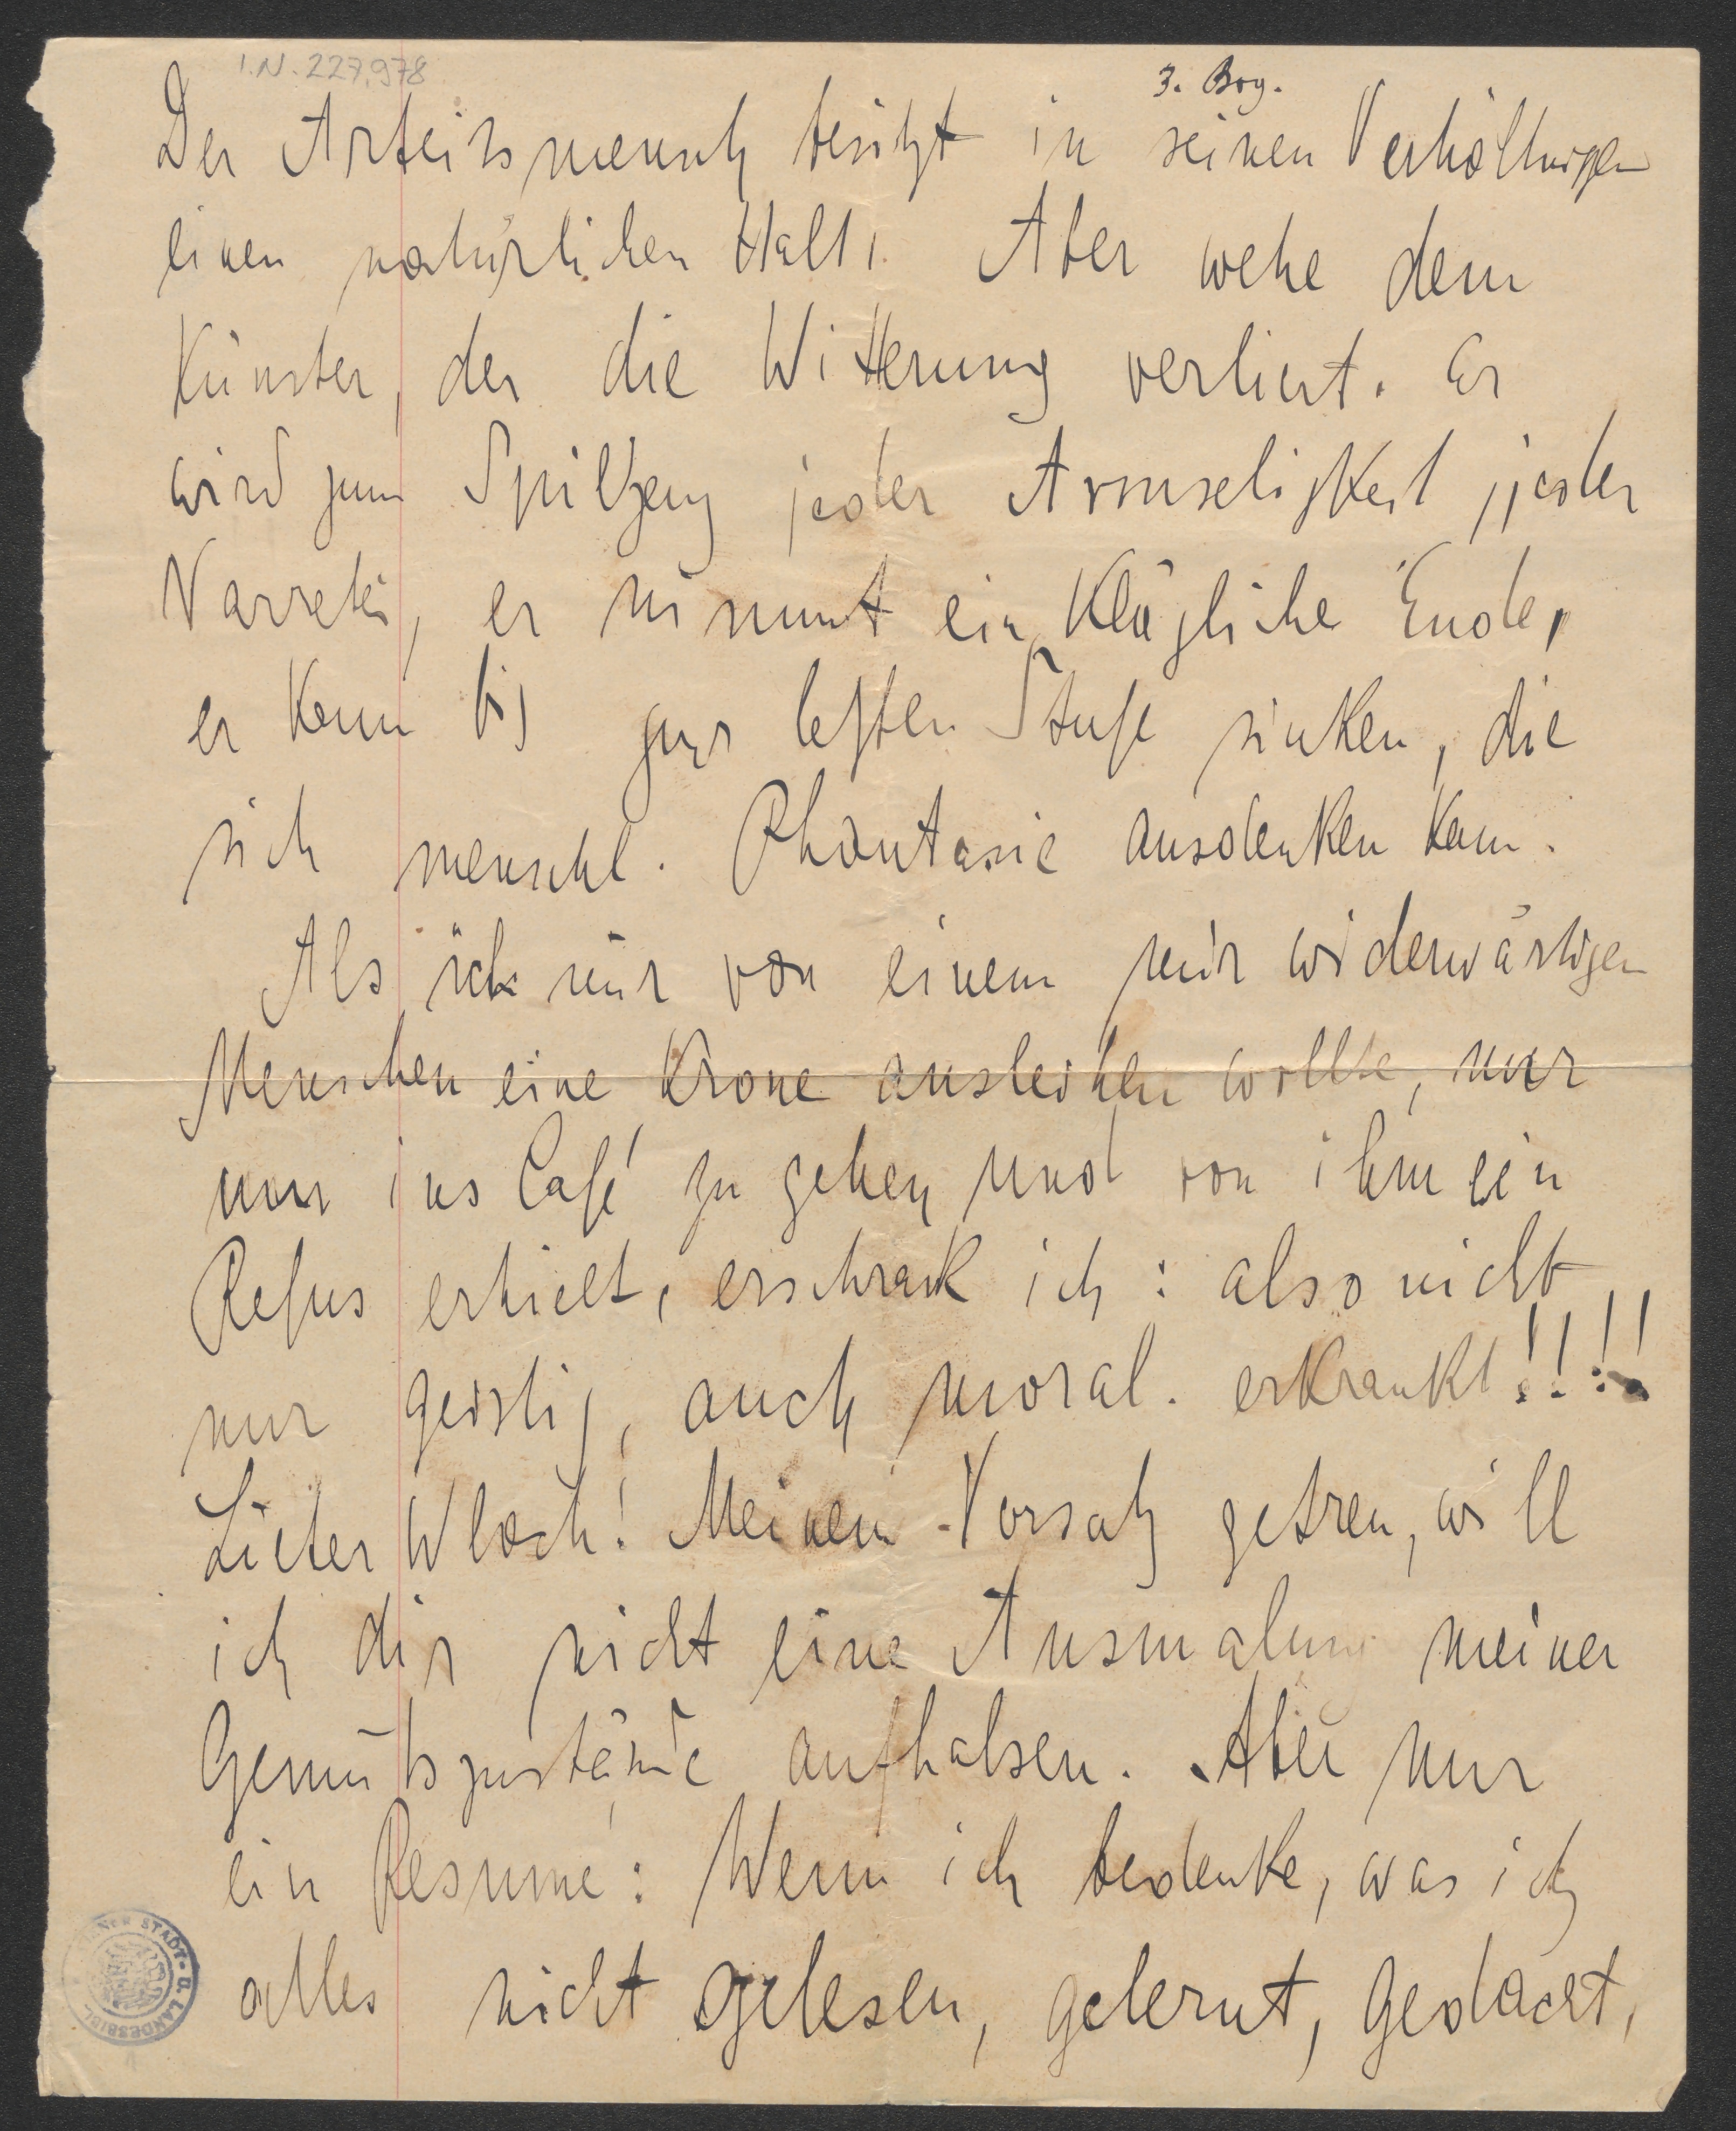 I.N. 227.978
3. Bog.
Der Arbeitsmensch besitzt in seinen Verhältnissen
einen natürlichen Halt. Aber wehe dem
Künster, der die Witterung verliert. Er
wird zum Spilzeug jeder Armseligkeit, jeder
Narretei, er nimmt ein klägliche Ende,
er kann bis zur letzten Stufe sinken, die
sich menschl. Phantasie ausdenken kann.
Als ich mir von einem mir widerwärtigen
Menschen eine Krone ausleihen wollte, nur
um ins Café zu gehen und von ihm ein
Refus erhielt, erschrak ich: also nicht
nur geistig, auch moral. erkrankt!!!!
Lieber Wlach! Meinem Vorsatz getreu, will
ich dir nicht eine Ausmalung meiner
Gemütszustände aufhalsen. Aber nur
ein Resume: Wenn ich bedenke, was ich
alles nicht gelesen, gelernt, gedacht,
WIENER STADT- U. LANDESBIBL.